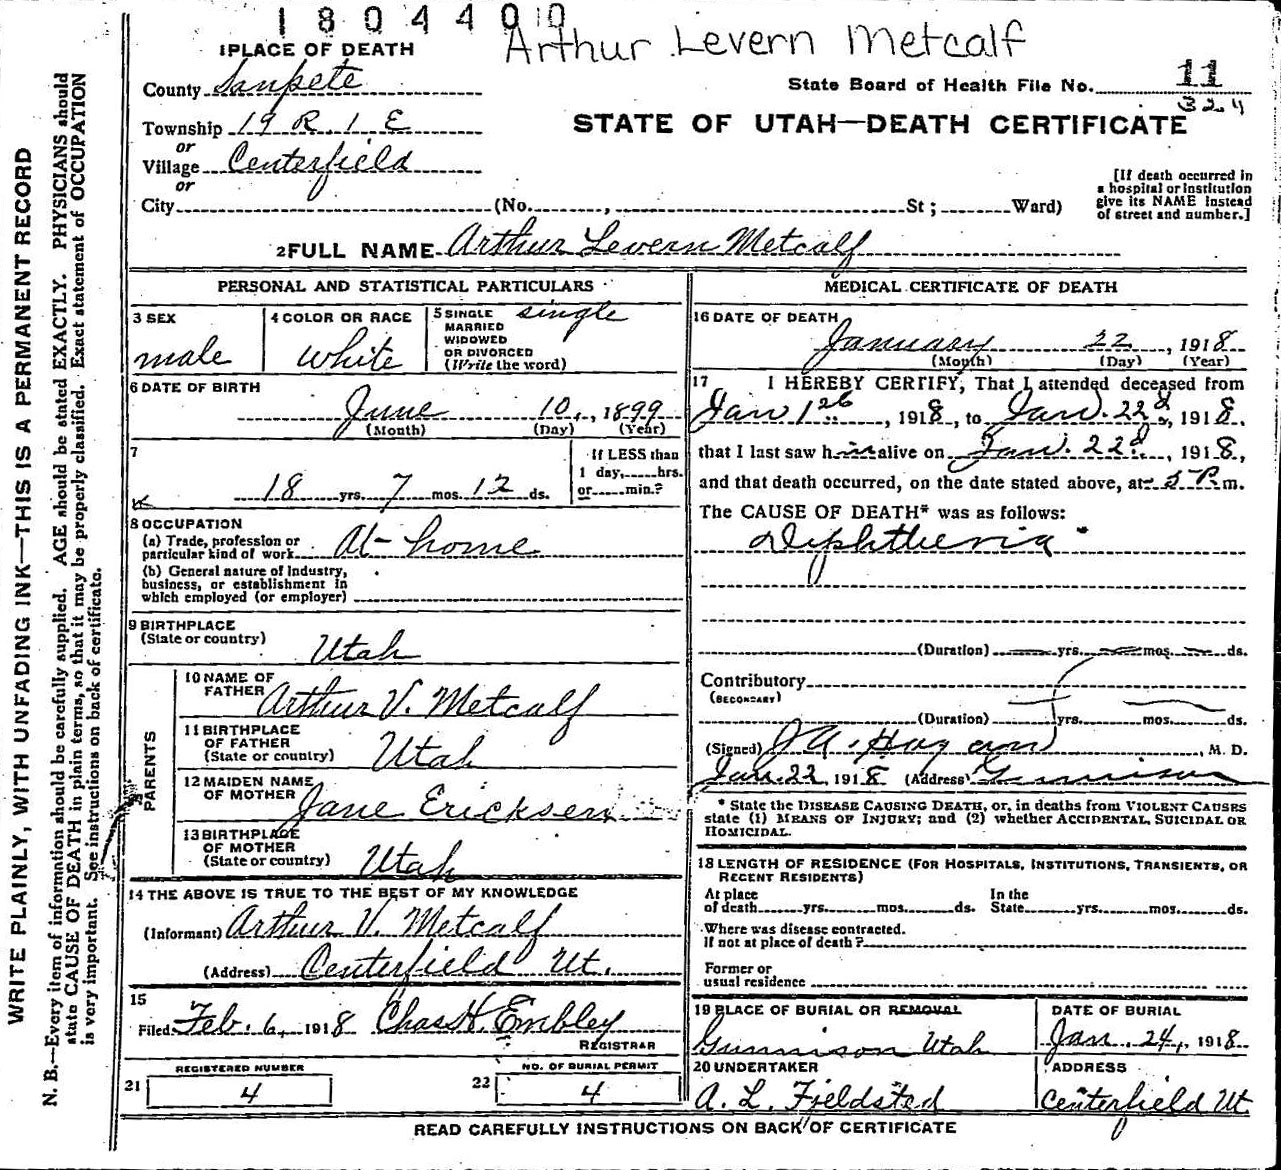 1804400
Arthur Levern Metcalf
1 PLACE OF DEATH
County Sanpete
State Board of Health File No. 11
324
Township 19 R. 1 E
or
STATE OF UTAH—DEATH CERTIFICATE
Village Centerfield
or
City (No. , St ; Ward)
[If death occurred in
a hospital or institution
give its NAME instead
of street and number.]
2 FULL NAME Arthur Levern Metcalf
PERSONAL AND STATISTICAL PARTICULARS
3 SEX
male
4 COLOR OR RACE
white
5 SINGLE
MARRIED
WIDOWED
OR DIVORCED
(Write the word)
single
6 DATE OF BIRTH
June 10, 1899
(Month) (Day) (Year)
7
18 yrs. 7 mos. 12 ds.
If LESS than
1 day, hrs.
or min.?
8 OCCUPATION
(a) Trade, profession or
particular kind of work At home
(b) General nature of industry,
business, or establishment in
which employed (or employer)
9 BIRTHPLACE
(State or country)
Utah
PARENTS
10 NAME OF
FATHER Arthur V. Metcalf
11 BIRTHPLACE
OF FATHER
(State or country) Utah
12 MAIDEN NAME
OF MOTHER Jane Ericksen
13 BIRTHPLACE
OF MOTHER
(State or country) Utah
14 THE ABOVE IS TRUE TO THE BEST OF MY KNOWLEDGE
(Informant) Arthur V. Metcalf
(Address) Centerfield Ut.
15
Filed Feb. 6, 1918 Chas H. Embley
REGISTRAR
21 REGISTERED NUMBER
4
22 NO. OF BURIAL PERMIT
4
MEDICAL CERTIFICATE OF DEATH
16 DATE OF DEATH
January 22, 1918
(Month) (Day) (Year)
17 I HEREBY CERTIFY, That I attended deceased from
Jan , 1918, to Jan. 22d, 1918.
that I last saw him alive on Jan. 22d, 1918,
and that death occurred, on the date stated above, at 5 P. m.
The CAUSE OF DEATH* was as follows:
Diphtheria
(Duration) yrs. mos. ds.
Contributory
(SECONDARY)
(Duration) yrs. mos. ds.
(Signed) J A. Hagan , M. D.
Jan. 22, 1918 (Address) Gunnison
* State the DISEASE CAUSING DEATH, or, in deaths from VIOLENT CAUSES
state (1) MEANS OF INJURY; and (2) whether ACCIDENTAL, SUICIDAL OR
HOMICIDAL.
18 LENGTH OF RESIDENCE (FOR HOSPITALS, INSTITUTIONS, TRANSIENTS, OR
RECENT RESIDENTS)
At place
of death yrs. mos. ds.
In the
State yrs. mos. ds.
Where was disease contracted.
If not at place of death?
Former or
usual residence
19 PLACE OF BURIAL OR REMOVAL
Gunnison Utah
DATE OF BURIAL
Jan. 24, 1918
20 UNDERTAKER
A. L. Fieldsted
ADDRESS
Centerfield Ut
READ CAREFULLY INSTRUCTIONS ON BACK OF CERTIFICATE
WRITE PLAINLY, WITH UNFADING INK—THIS IS A PERMANENT RECORD
N. B.—Every item of information should be carefully supplied. AGE should be stated EXACTLY. PHYSICIANS should
state CAUSE OF DEATH in plain terms, so that it may be properly classified. Exact statement of OCCUPATION
is very important. See instructions on back of certificate.